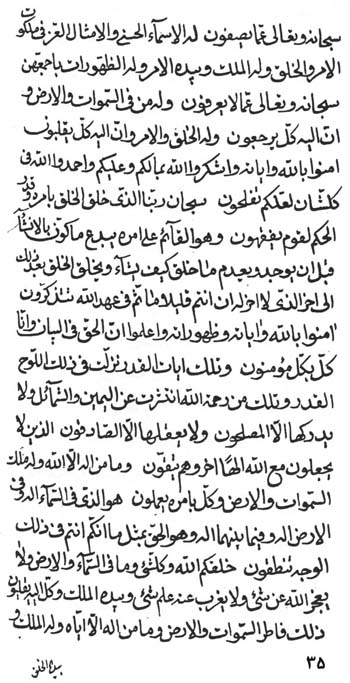 سبحانه وتعالی عمّا یصفون له الاسماء الحسنی والامثال العز فی ملکوت
الامر والخلق وله الملک وبیده الامر وله الظهورات باجمعهن
سبحانه وتعالی عمّا لا یعرفون وله من فی السموات والارض و
انّ الیه کلّ یرجعون وله الخلق والامر وانّ الیه کلّ یقلبون
امنوا بالله وایاته واشکروا الله بمالکم وعلیکم واحمدوا الله فی
کلّ شان لعلّکم تفلحون سبحان ربّنا الذی خلق الخلق بامره وقدر
الحکم لقوم یفقهون وهو القائم علی امره یبدع ما کوّن بالانشاء
قبل ان یوجد ویعدم ما خلق کیف یشاء ویخلق الخلق بعد ذلک
الی اخر الذی لا اخر له ان انتم قلیلا ما انتم فی عهد الله تتذکرون
امنوا بالله وایاته وظهوراته واعلموا انّ الحق فی البیان وانّا
کلّ بکلّ مؤمنون وتلک ایات القدر نزلت فی ذلک اللوح
القدر وتلک من رحمة الله انتشرت عن الیمین والشمائل ولا
یدرکها الّا المصلحون ولا یعقلها الّا الصادقون الذین لا
یجعلون مع الله الهًا اخر وهم یتقون وما من اله الّا الله وله ملک
السموات والارض وکلّ بامره یعملون هو الذی فی السماء اله وفی
الارض اله وفیما بینهما اله وهو الحق بمثل ما انّکم انتم فی ذلک
الوجه تنطقون خلقکم الله وکلّشئ وما فی السماء والارض ولا
یعجز الله عن شئ ولا یعزب عنه علم شئ وبیده الملک وکلّ الیه یقلبون
ذلک فاطر السموات والارض وما من اله الّا ایّاه وله الملک و
۳۵
بیده الخلق